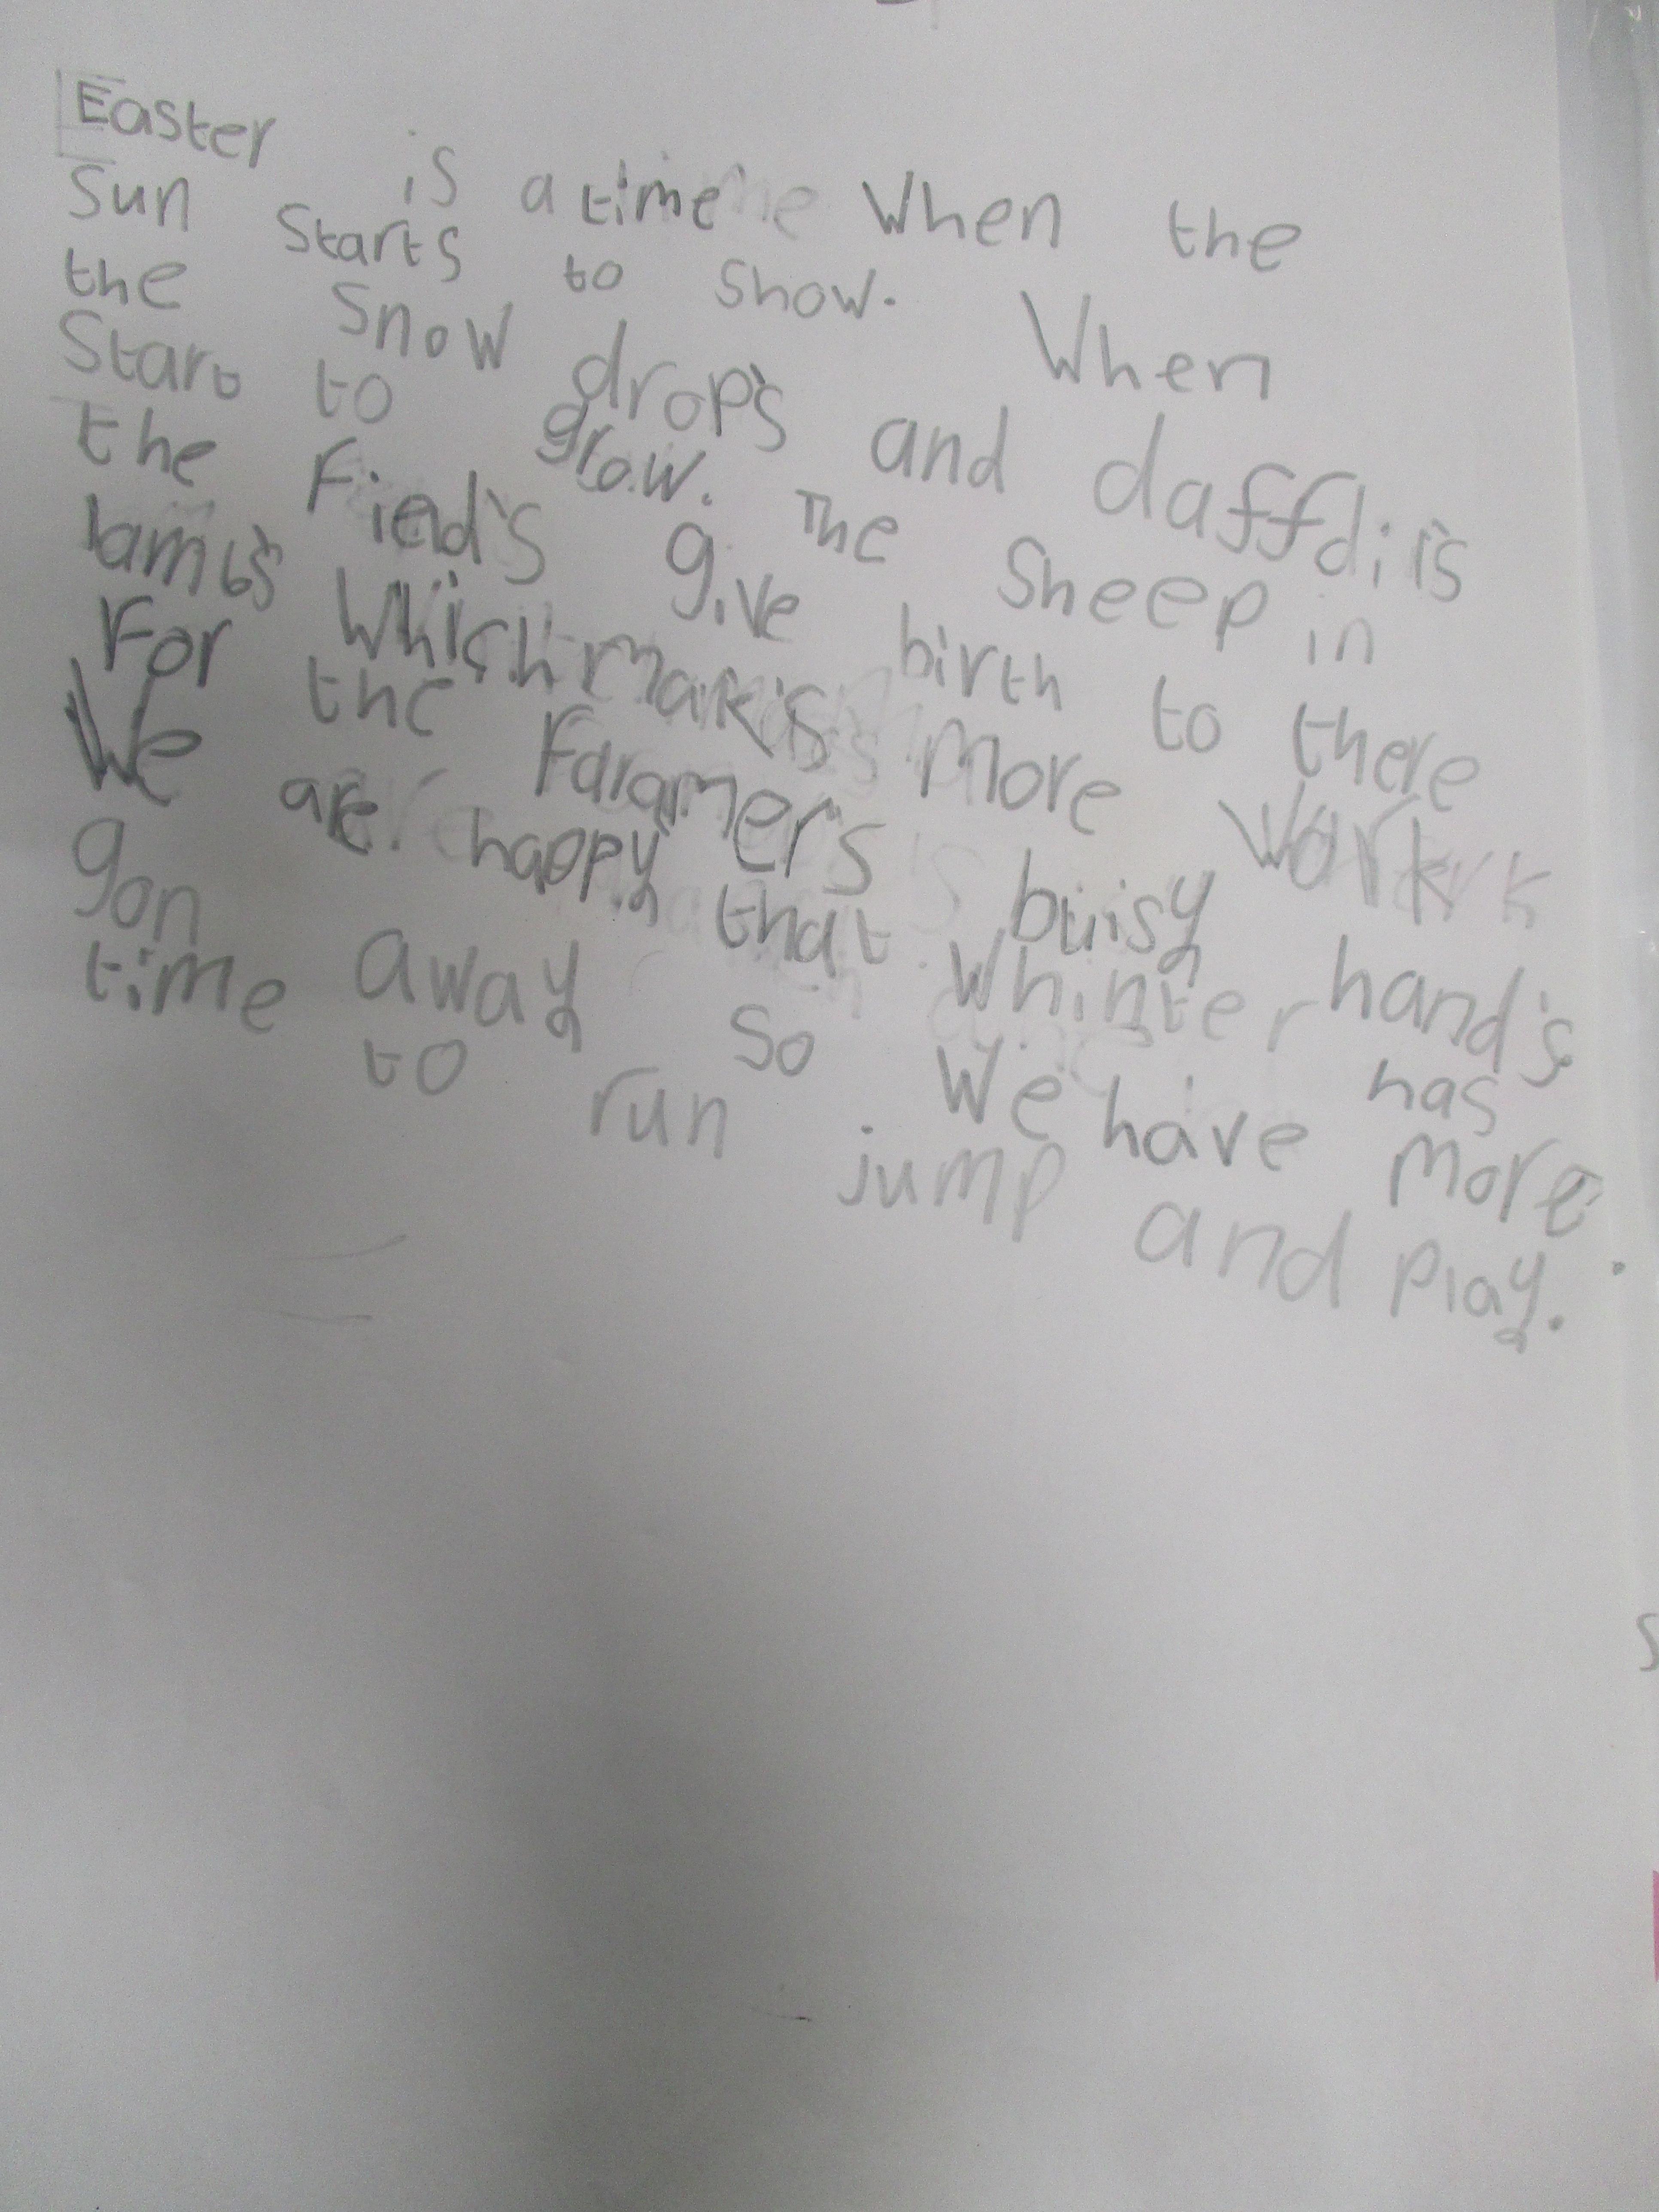 Easter is a time when the
Sun Starts to Show. When
the Snow drop's and daffdil's
Start to grow. The Sheep in
the Fied's give birth to there
lamb's which mak's more work
For the Faramer's buisy hand's
We are happy that whinter has
gon away So We have more
time to run jump and Play.